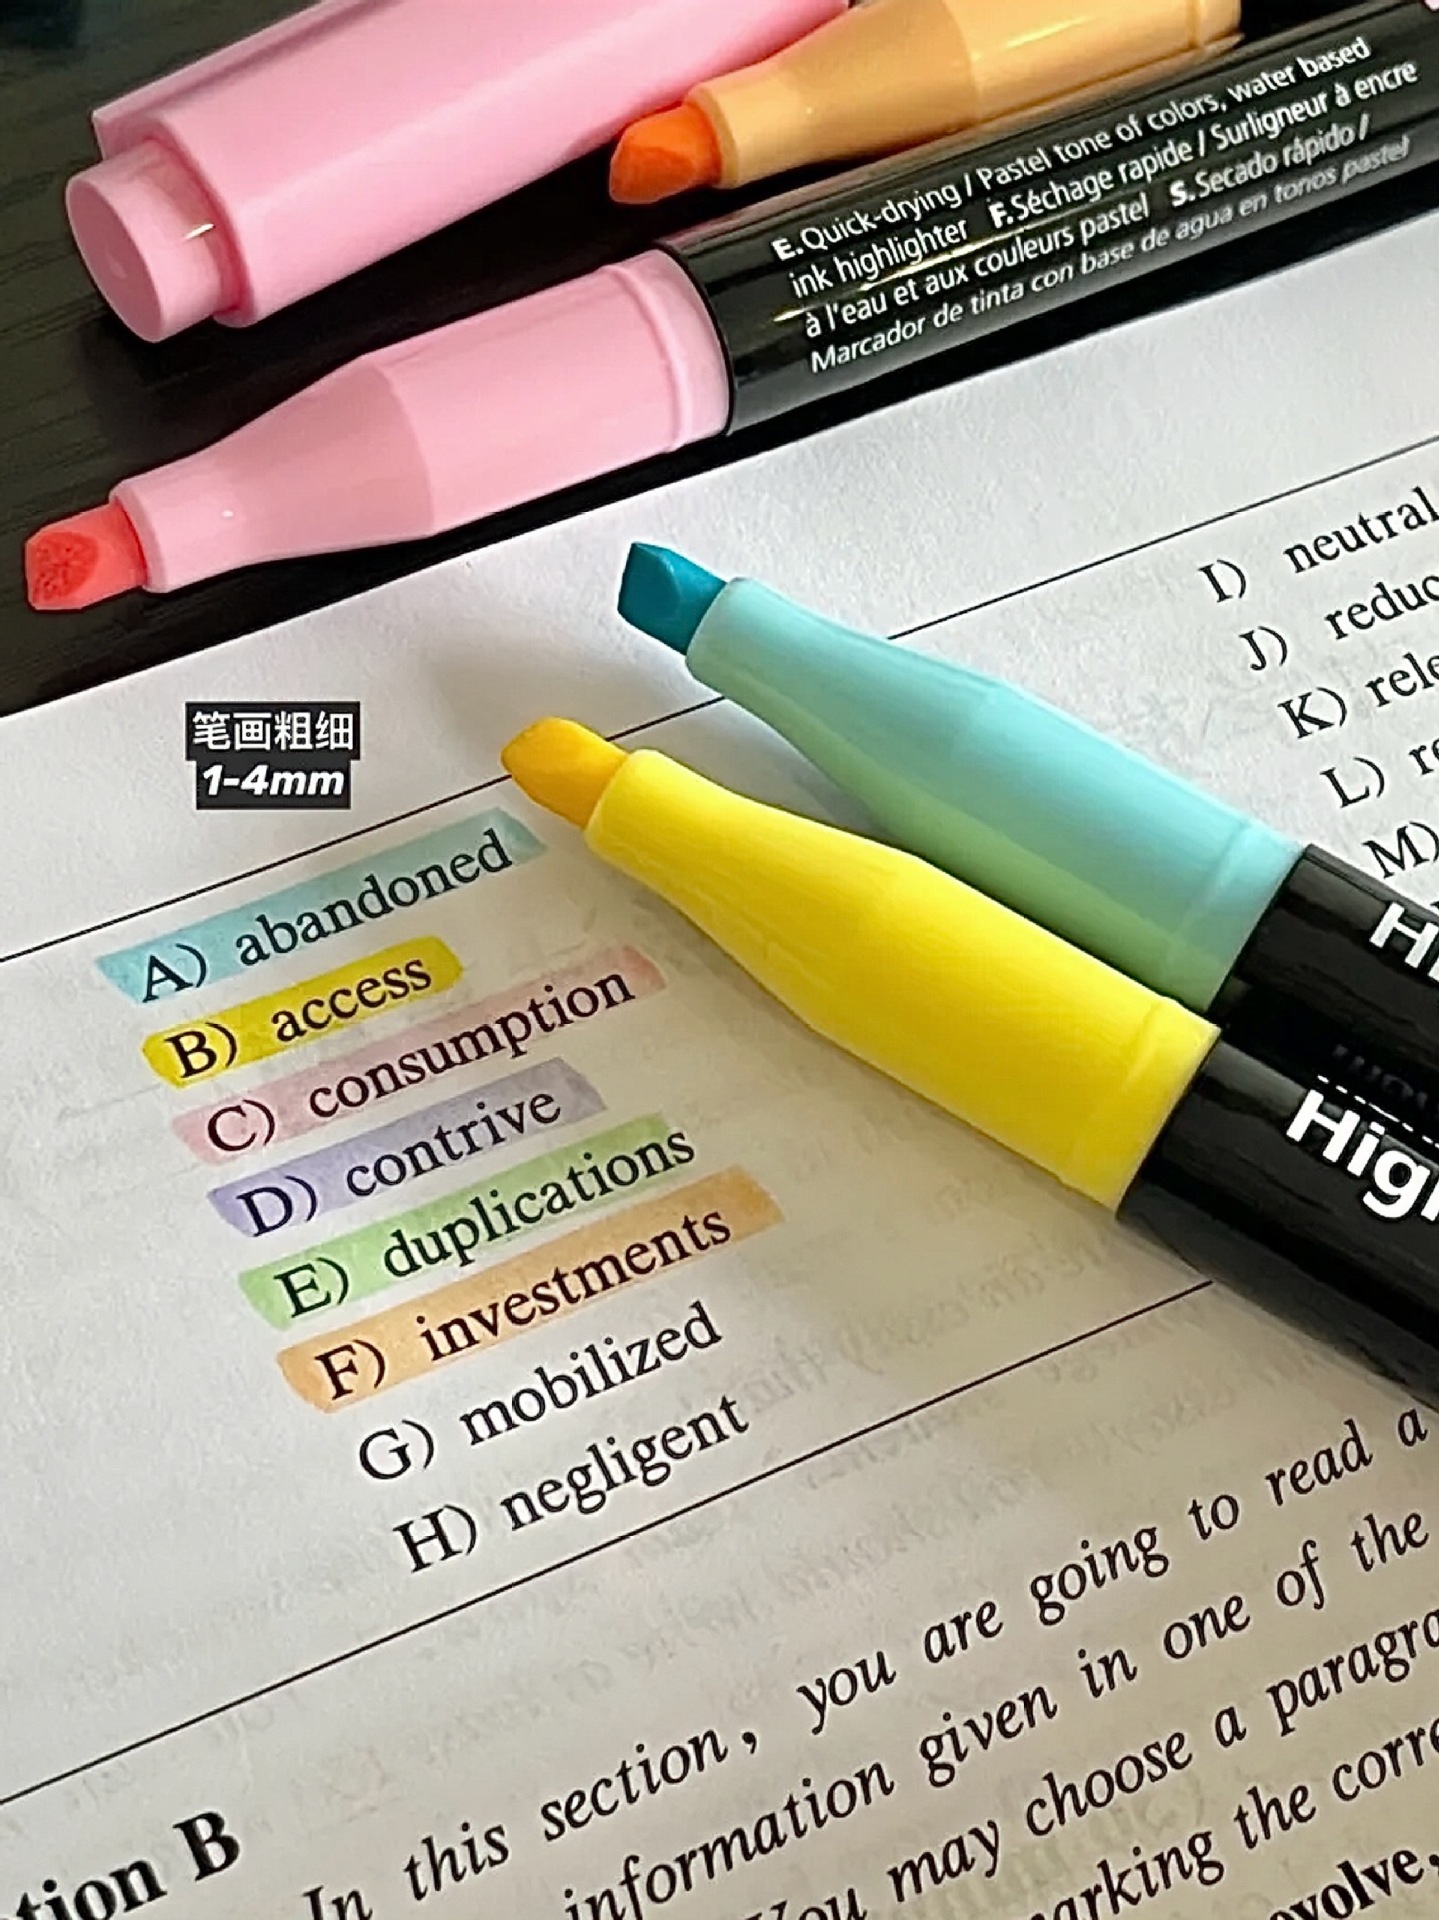 E.Quick-drying / Pastel tone of colors, water based
ink highlighter F.Séchage rapide / Surligneur à encre
à l'eau et aux couleurs pastel S.Secado rápido /
Marcador de tinta con base de agua en tonos pastel
笔画粗细
1-4mm
A) abandoned
B) access
C) consumption
D) contrive
E) duplications
F) investments
G) mobilized
H) negligent
I) neutral
J) reduc
K) rele
L) re
M)
Hi
Higl
tion B
In this section, you are going to read a
information given in one of the
You may choose a paragra
arking the corre
volve,